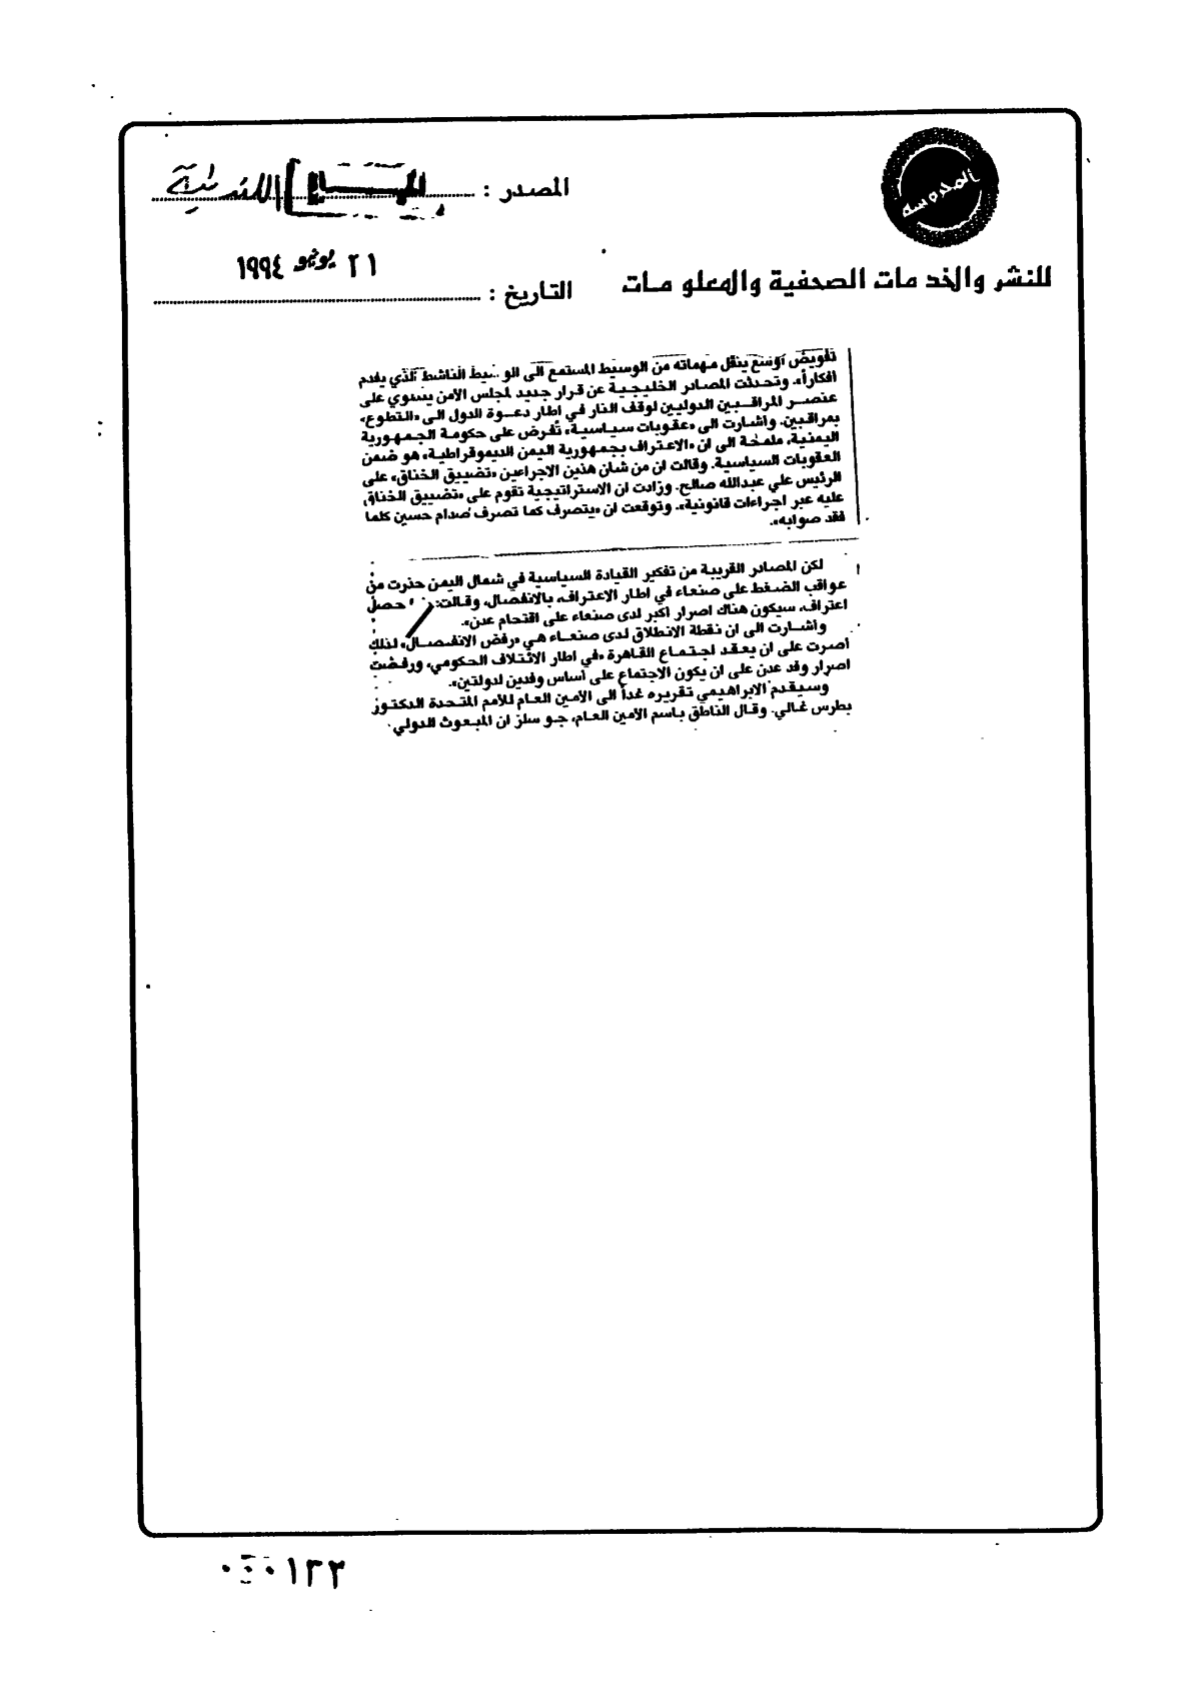 المحروسة
المصدر : الحياة اللندنية
للنشر والخدمات الصحفية والمعلومات
التاريخ : ٢١ يونيو ١٩٩٤
تفويض أوسع ينقل مهماته من الوسيط المستمع الى الوسيط الناشط الذي يقدم
افكاراً». وتحدثت المصادر الخليجية عن قرار جديد لمجلس الأمن يستوي على
عنصر المراقبين الدوليين لوقف النار في اطار دعوة الدول الى «التطوع»
بمراقبين. واشارت الى «عقوبات سياسية» تُفرض على حكومة الجمهورية
اليمنية، ملمحة الى ان «الاعتراف بجمهورية اليمن الديموقراطية» هو ضمن
العقوبات السياسية. وقالت ان من شان هذين الاجراءين «تضييق الخناق» على
الرئيس علي عبدالله صالح. وزادت ان الاستراتيجية تقوم على «تضييق الخناق
عليه عبر اجراءات قانونية». وتوقعت ان «يتصرف كما تصرف صدام حسين كلما
فقد صوابه».
لكن المصادر القريبة من تفكير القيادة السياسية في شمال اليمن حذرت من
عواقب الضغط على صنعاء في اطار الاعتراف بالانفصال، وقالت: حصل
اعتراف، سيكون هناك اصرار اكبر لدى صنعاء على اقتحام عدن».
واشارت الى ان نقطة الانطلاق لدى صنعاء هي «رفض الانفصال» لذلك
اصرت على ان يعقد اجتماع القاهرة «في اطار الائتلاف الحكومي، ورفضت
اصرار وفد عدن على ان يكون الاجتماع على أساس وفدين لدولتين».
وسيقدم الابراهيمي تقريره غداً الى الأمين العام للأمم المتحدة الدكتور
بطرس غالي. وقال الناطق باسم الأمين العام، جو سلز ان المبعوث الدولي